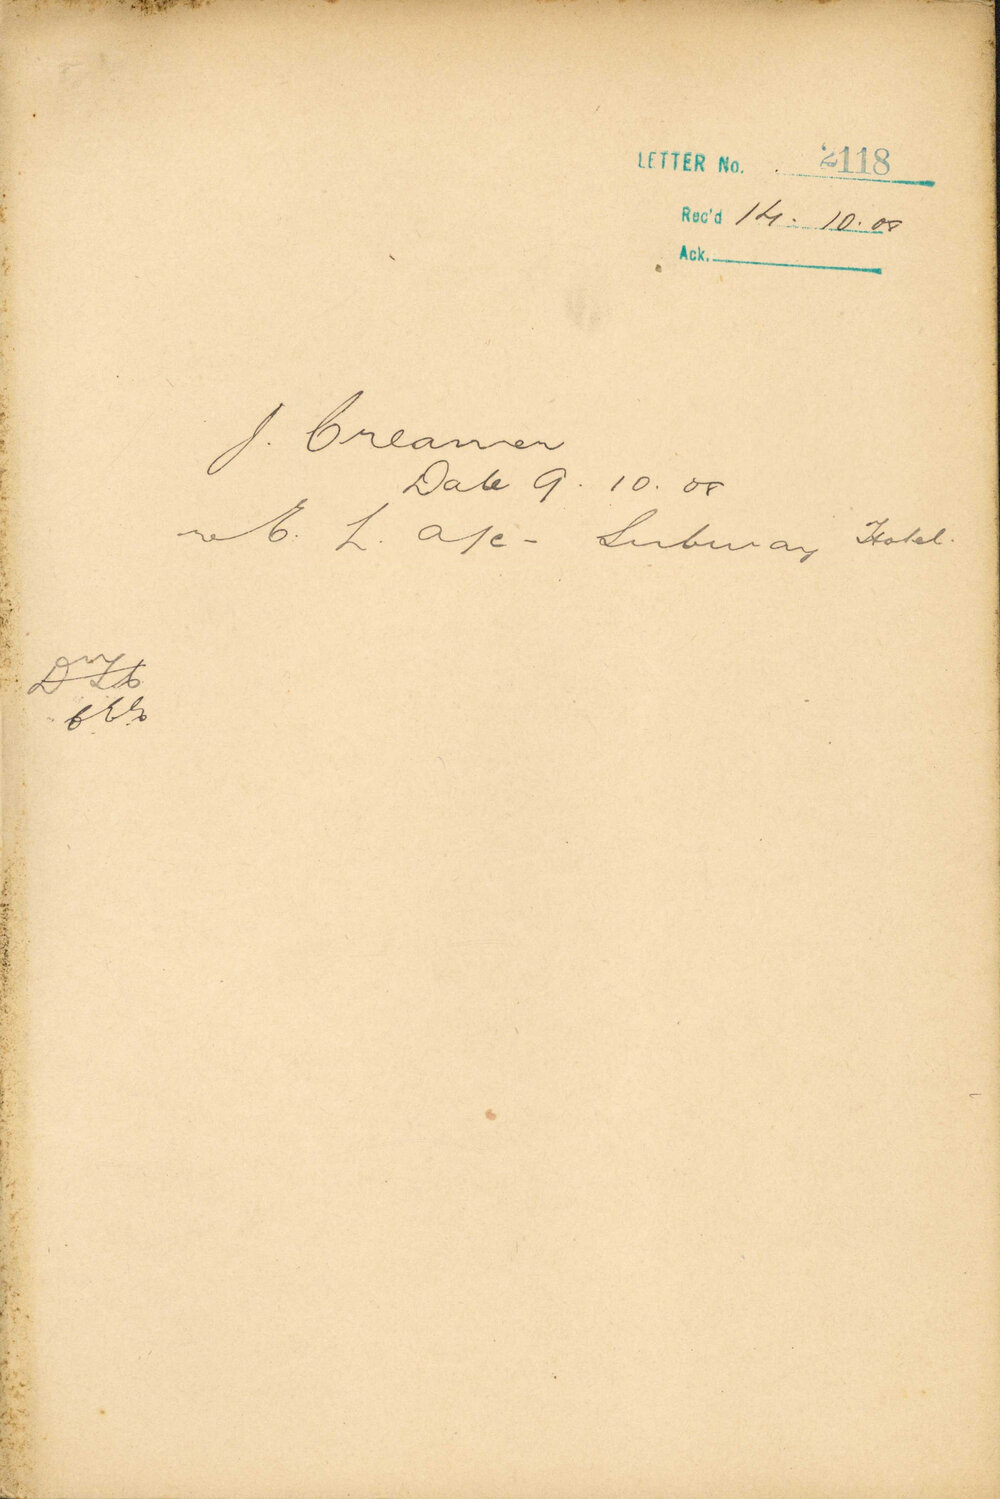 LETTER No. 2118
Rec'd 14. 10. 08
Ack.
J. Creamer
Date 9. 10. 08
re E. L. a/c - Subway Hotel.